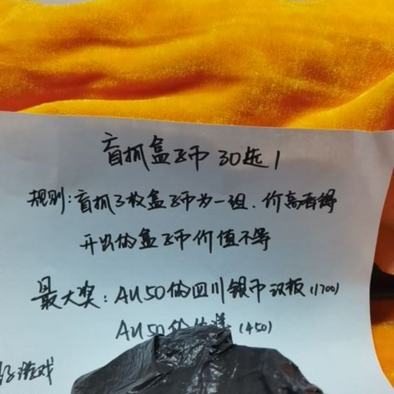 盲抓盒子币 30选1
规则:盲抓3枚盒子币为一组.价高者得
开出的盒子币价值不等
最大奖:AU50的四川银币汉版(1700)
AU50 (450)
游戏